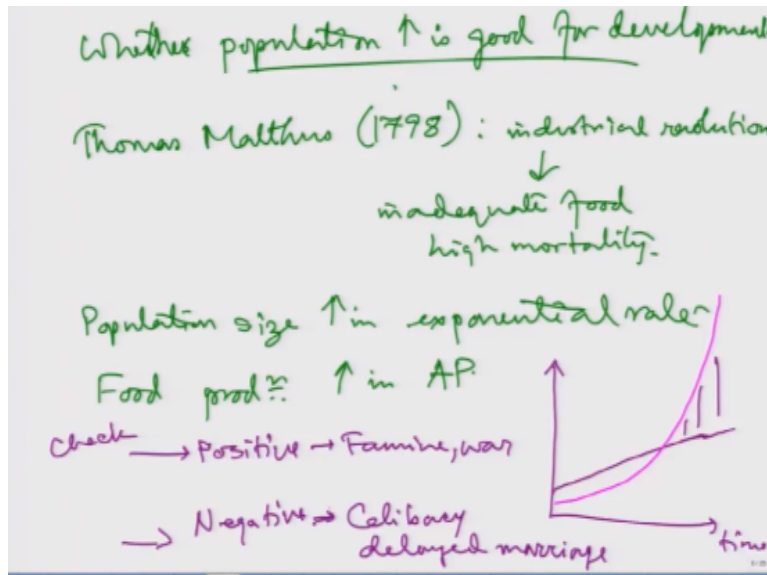 Whether population ↑ is good for development
Thomas Malthus (1798) : industrial revolution
↓
inadequate food
high mortality.
Population size ↑ in exponential rate
Food prodⁿ ↑ in AP.
Check → Positive → Famine, war
→ Negative → Celibacy
delayed marriage
time